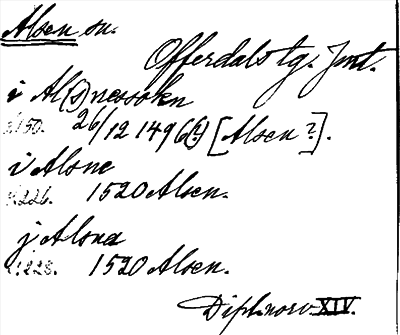 Alsen sn.
Offerdals tg. Jmt.
i Al(s)nessokn
s.150. 26/12 1496(?) [Alsen?].
i Alsne
s.226. 1520 Alsen.
j Alsna
s.228. 1520 Alsen.
Dipl. norv. XIV.